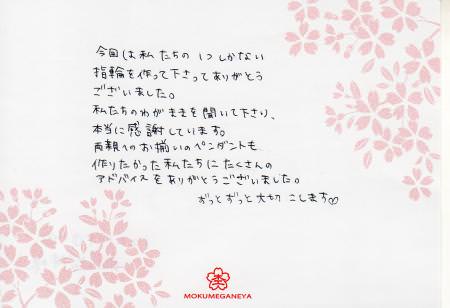 今回は私たちの1つしかない
指輪を作って下さってありがとう
ございました。
私たちのわがままを聞いて下さり、
本当に感謝しています。
両親へのお揃いのペンダントも
作りたかった私たちにたくさんの
アドバイスをありがとうございました。
ずっとずっと大切にします♡
MOKUMEGANEYA